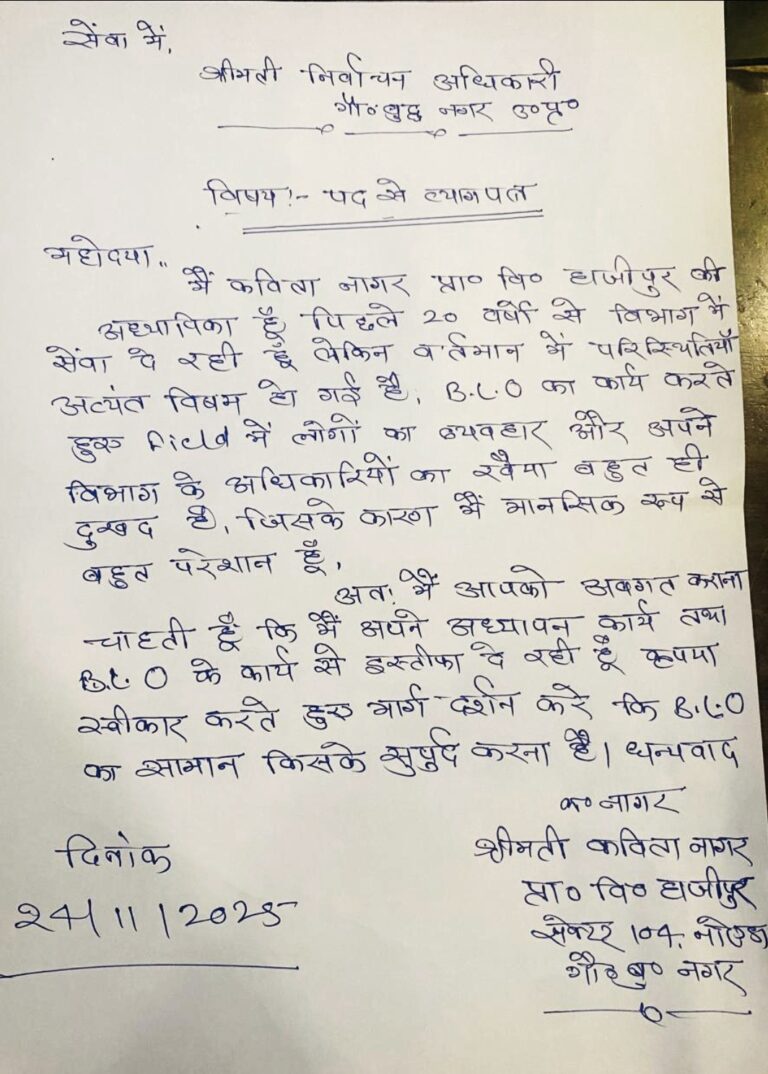 सेंवा में,
श्रीमती निर्वाचन अधिकारी
गौ० बुद्ध नगर उ०प्र०
विषय :- पद से त्यागपत्र
महोदया..
मैं कविता नागर प्रा० वि० हाजीपुर की
अध्यापिका हूँ पिछले 20 वर्षों से विभाग में
सेंवा दे रही हूँ लेकिन वर्तमान में परिस्थितियाँ
अत्यंत विषम हो गई है, B.L.O का कार्य करते
हुए Field में लोगों का व्यवहार और अपने
विभाग के अधिकारियों का रवैया बहुत ही
दुखद है, जिसके कारण मैं मानसिक रूप से
बहुत परेशान हूँ,
अतः मैं आपको अवगत कराना
चाहती हूँ कि मैं अपने अध्यापन कार्य तथा
B.L.O के कार्य से इस्तीफा दे रही हूँ कृपया
स्वीकार करते हुए मार्ग दर्शन करे कि B.L.O
का सामान किसके सुर्पुद करना है। धन्यवाद
क० नागर
श्रीमती कविता नागर
प्रा० वि० हाजीपुर
सेक्टर 104, नोएडा
गौ० बु० नगर
दिनांक
24/11/2025